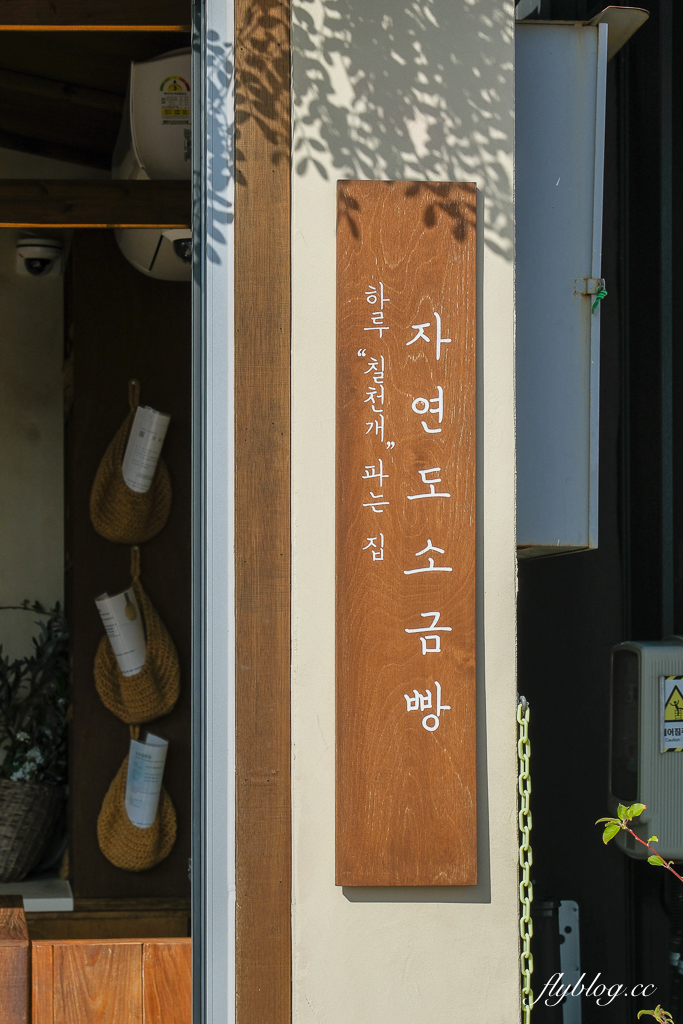 자연도소금빵
하루 “칠천개” 파는 집
Caution
flyblog.cc